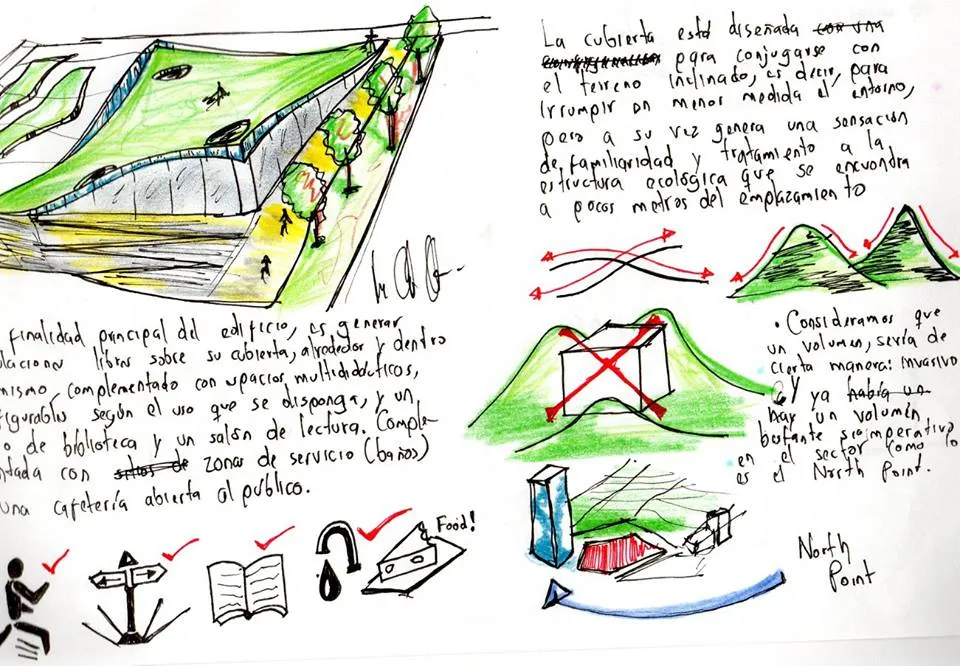 finalidad principal del edificio, es generar
ulaciones libres sobre su cubierta, alrededor y dentro
mismo, complementado con espacios multididácticos,
figurables según el uso que se disponga, y un
o de biblioteca y un salón de lectura. Comple-
ntada con sitios de zonas de servicio (baños)
una cafetería abierta al público.
Food!
La cubierta está diseñada con una
para conjugarse con
el terreno inclinado, es decir, para
irrumpir en menor medida el entorno,
pero a su vez genera una sensación
de familiaridad y tratamiento a la
estructura ecológica que se encuentra
a pocos metros del emplazamiento
• Consideramos que
un volumen, sería de
cierta manera: invasivo
y ya había un
hay un volumen
bastante imperativo
en el sector como lo
es el North Point.
North
Point